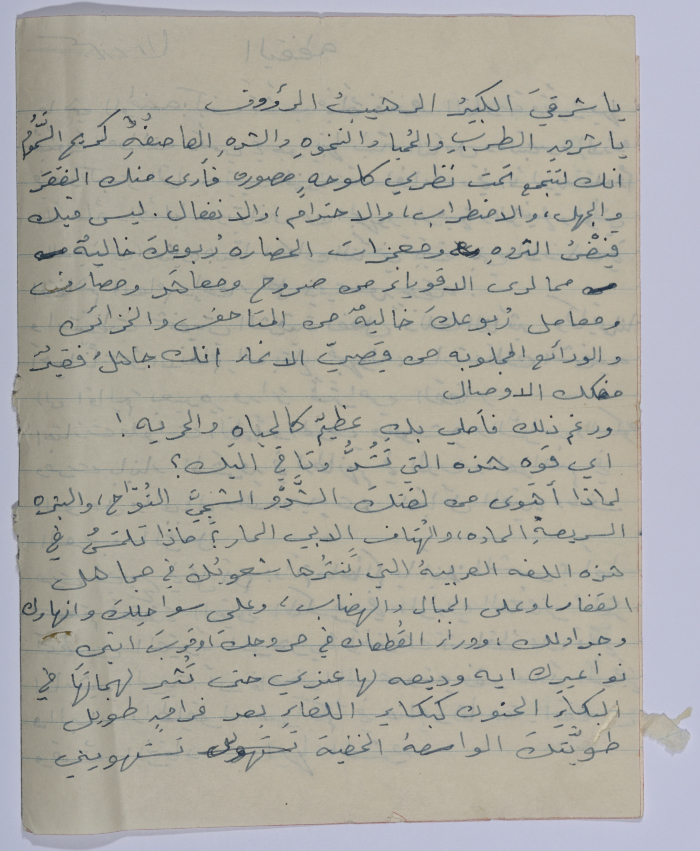 يا شرقيَ الكبيرُ الرهيبُ الرؤوف
يا شرقي الطربِ والحُميا والنخوهِ والشدهِ العاصفهِ كريم
انك لتتجمع تحت نظري كلوحهِ مصوره فأرى منك الفقرَ
والجهل، والاضطراب، والاحتدام، والانفعال. ليس فيك
فيْضُ الثروهِ ومعجزات الحضاره رُبوعكَ خاليهٌ
مما لدى الاقوياءِ من صروح ومعاهدَ ومصارفَ
ومعامل رُبوعكَ خاليهٌ من المتاحف والخزائن
والودائع المجلوبه من قصيّ الانحاء انك جاهلٌ فقيرٌ
مفكك الاوصال
ورغم ذلك فأملي بك عظيمٌ كالحياه والحريه!
اي قوه هذه التي تشُدُّ وثاقي اليك؟
لماذا أهوى من لغتكَ الشَّدْوَ الشجيَّ النُوّاح، والنبره
السريعةِ الحاده، والهُتافَ الابي الحار؟ ماذا تلمّسُ في
هذه اللغه العربية التي تَنثُرها شعوبُكَ في مجاهل
القفار، وعلى الجبال والهضاب، وعلى سواحلِكَ وانهارك
وجداولك، ووراء القُطعان في مروجكَ، وقربَ انين
نواعيرك ايه وديعه لها عندي حتى تُثير لهجاتُها في
البكاءِ الحنون كبكاءِ اللقاءِ بعد فراقٍ طويل
طويَّتكَ الواسعهُ الخفية تستهويني